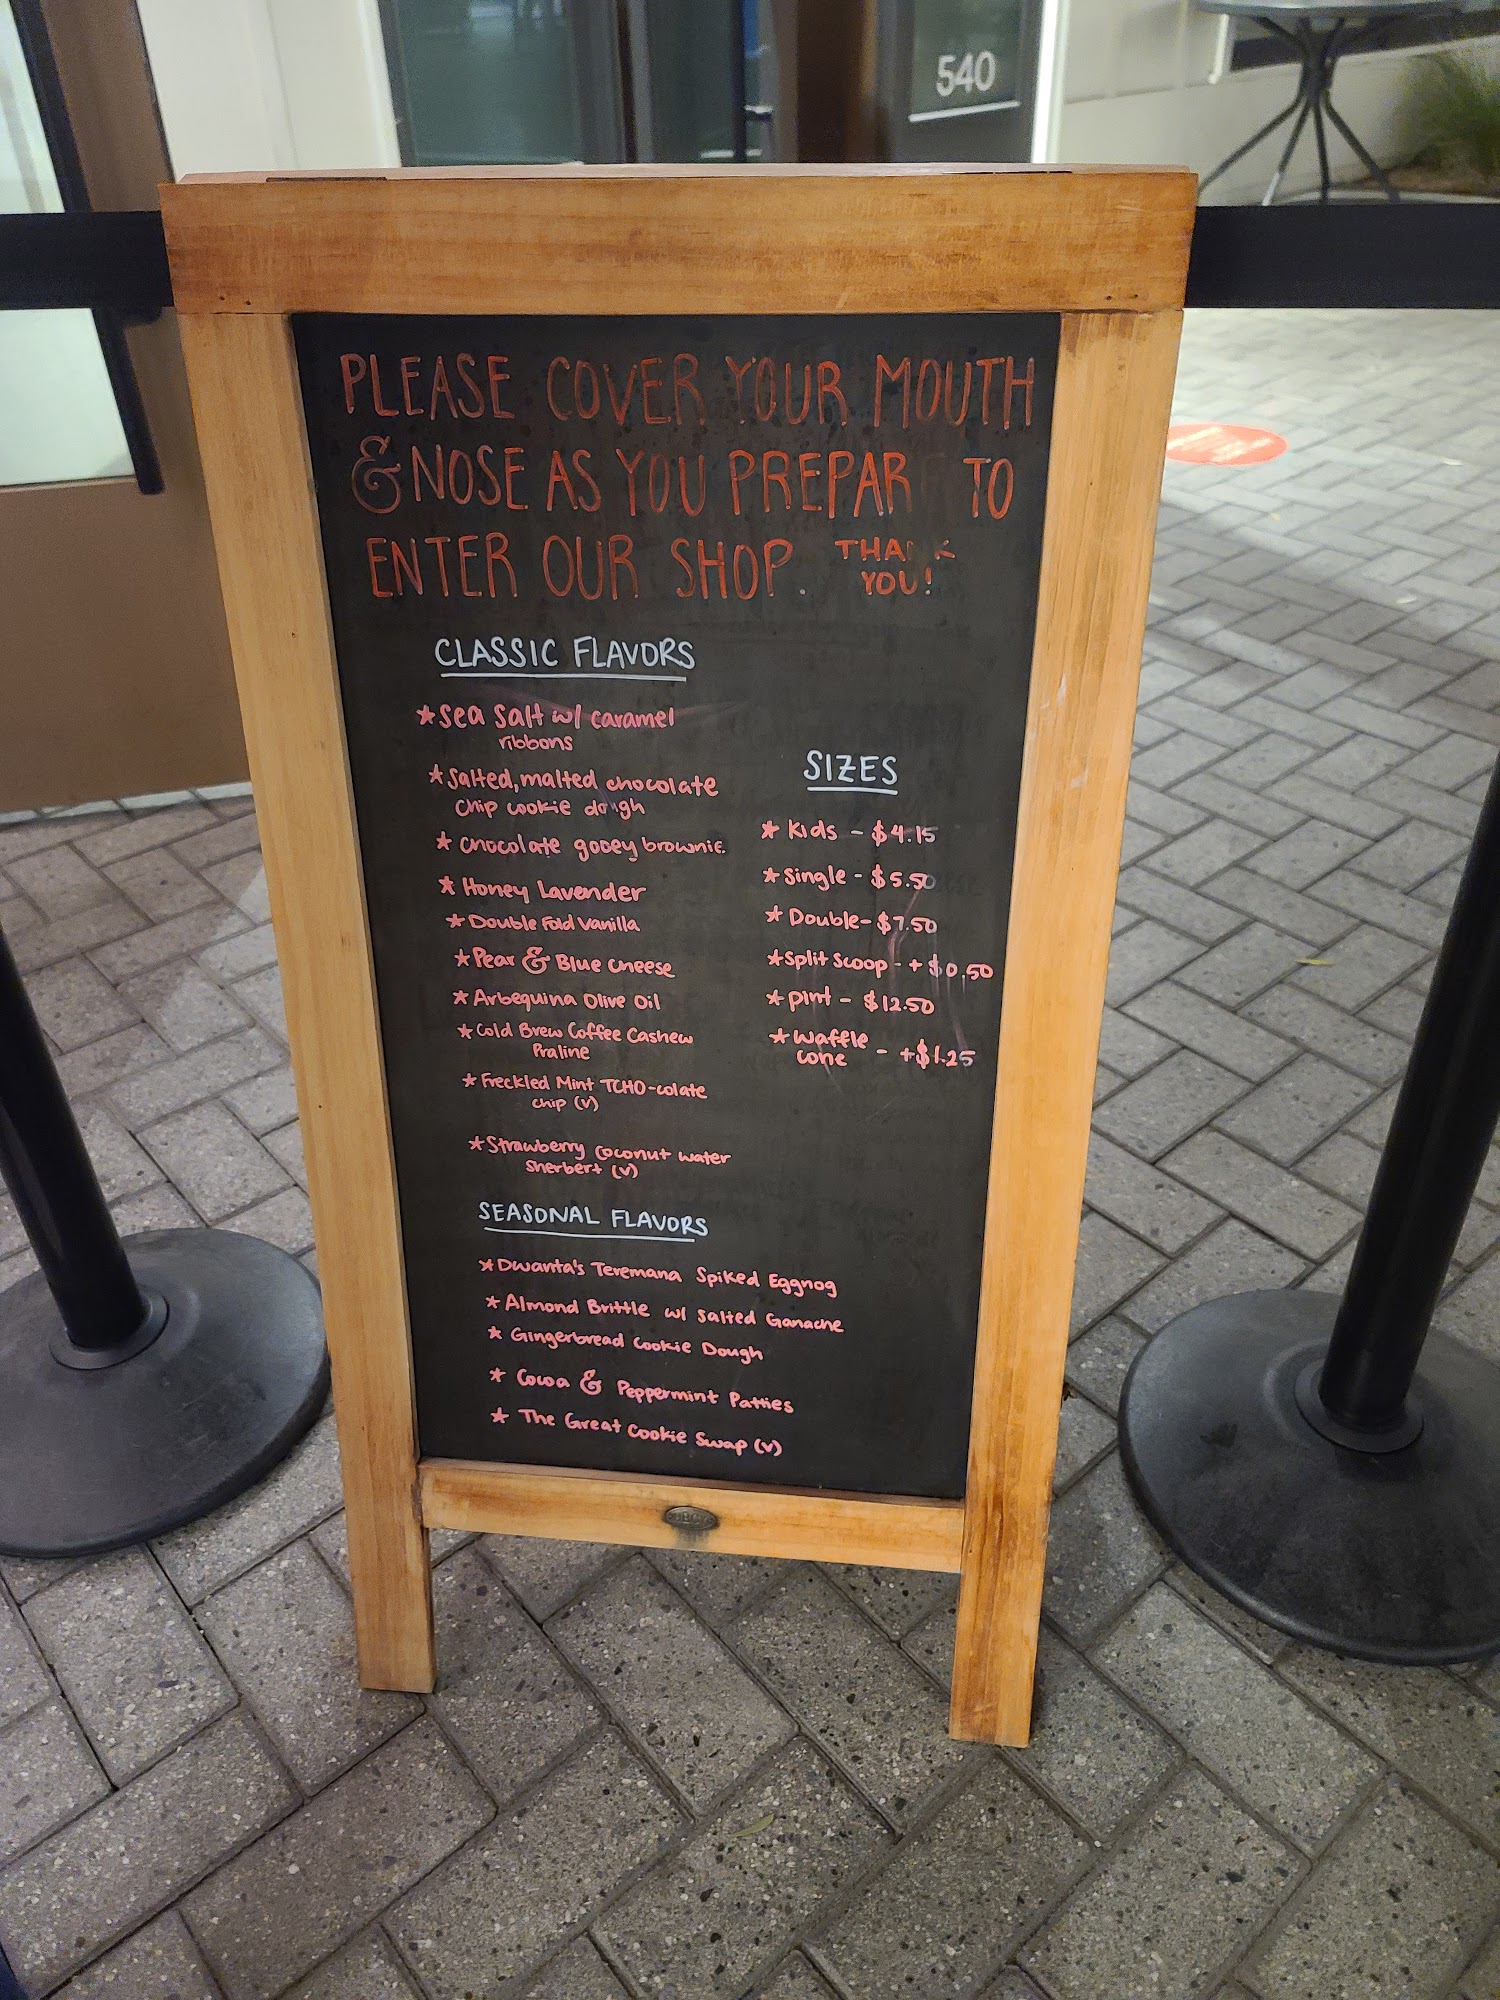 540
PLEASE COVER YOUR MOUTH
& NOSE AS YOU PREPAR TO
ENTER OUR SHOP. THA K
YOU!
CLASSIC FLAVORS
★ Sea Salt w/ caramel
ribbons
★ Salted, malted chocolate
chip cookie dough
★ Chocolate gooey brownie
★ Honey Lavender
★ Double Fold Vanilla
★ Pear & Blue Cheese
★ Arbequina Olive Oil
★ Cold Brew Coffee Cashew
Praline
★ Freckled Mint TCHO-colate
chip (v)
★ Strawberry Coconut water
Sherbert (v)
SIZES
★ Kids - $4.15
★ Single - $5.50
★ Double - $7.50
★ Split Scoop - + $0.50
★ pint - $12.50
★ waffle
cone - +$1.25
SEASONAL FLAVORS
★ Dwanta's Teremana Spiked Eggnog
★ Almond Brittle w/ Salted Ganache
★ Gingerbread Cookie Dough
★ Cocoa & Peppermint Patties
★ The Great Cookie Swap (v)